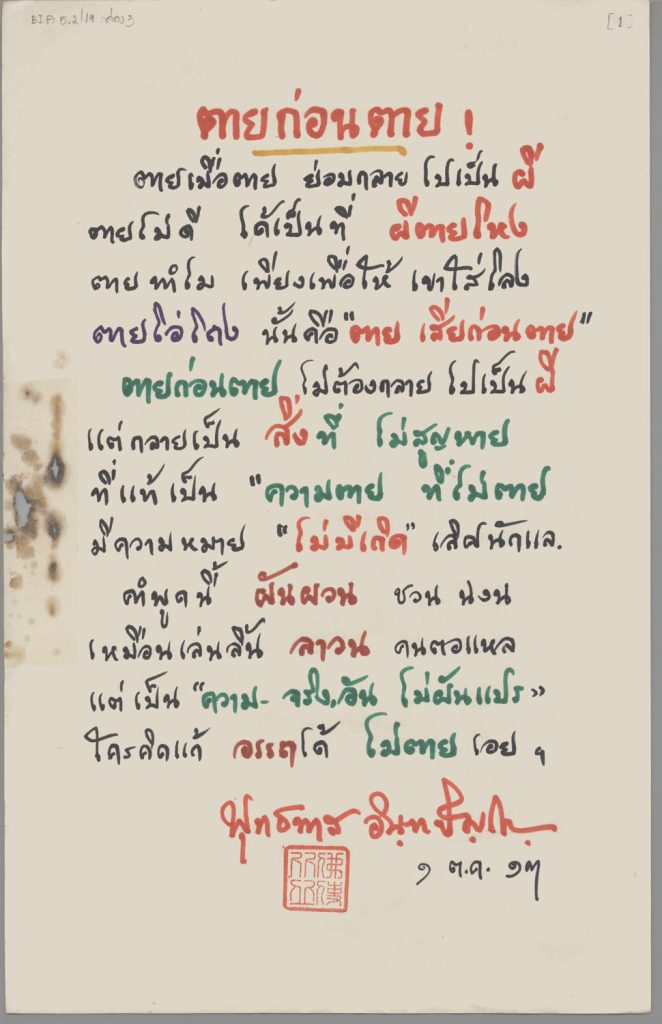 BIA ๕.๒/๑๙ กล่อง ๓
[1]
ตายก่อนตาย !
ตายเมื่อตาย ย่อมกลาย ไปเป็น ผี
ตายไม่ดี ได้เป็นที่ ผีตายโหง
ตาย ทำไม เพียงเพื่อให้ เขาใส่โลง
ตายโอ่โถง นั้นคือ "ตาย เสียก่อนตาย"
ตายก่อนตาย ไม่ต้องกลาย ไปเป็น ผี
แต่ กลายเป็น สิ่ง ที่ ไม่สูญหาย
ที่แท้ เป็น "ความตาย ที่ไม่ตาย
มีความหมาย "ไม่มีเกิด" เลิศนักแล.
คำพูดนี้ ผันผวน ชวน ฉงน
เหมือนเล่นลิ้น ลาวน คนตอแหล
แต่ เป็น "ความ- จริง, อัน ไม่ผันแปร"
ใครคิดแก้ อรรถได้ ไม่ตาย เอย ฯ
พุทธทาส อินฺทปัญฺโญ
๑ ต.ค. ๑๓